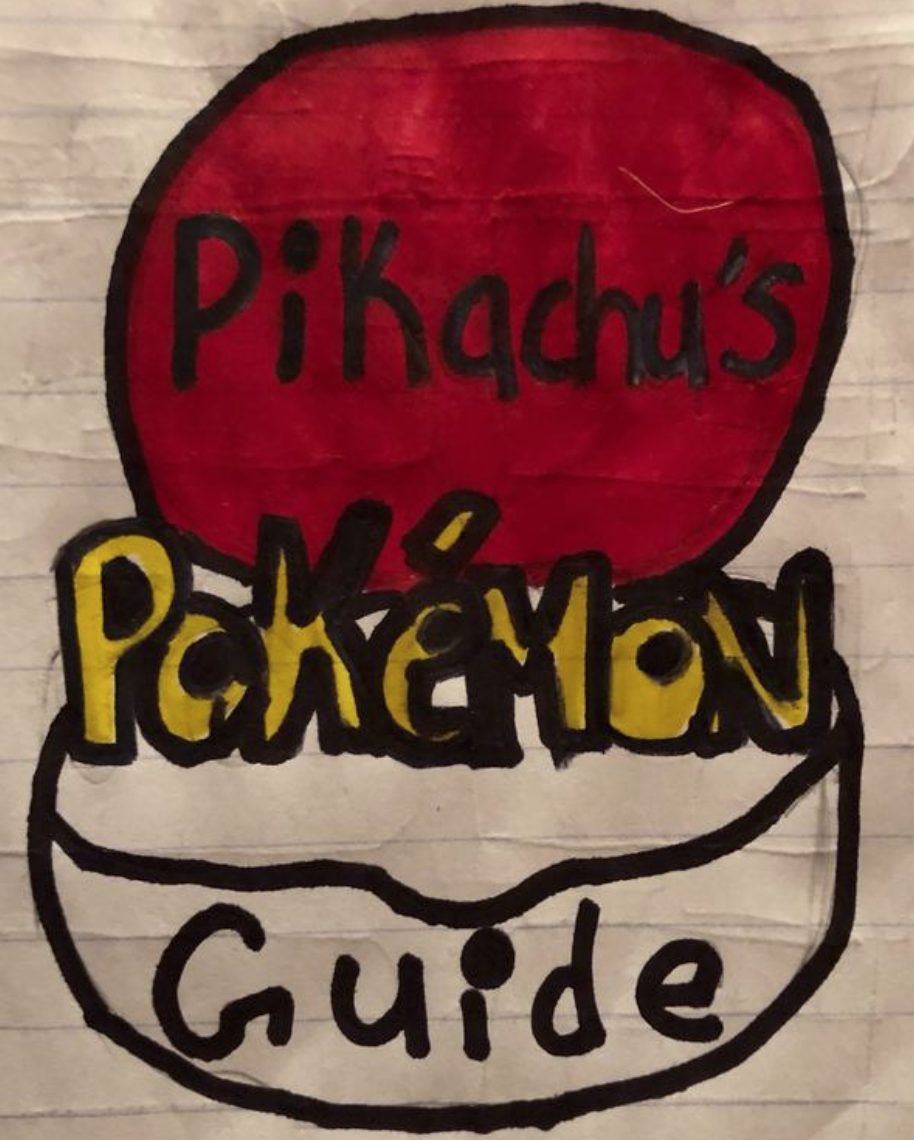 Pikachu's
PoKéMoN
Guide